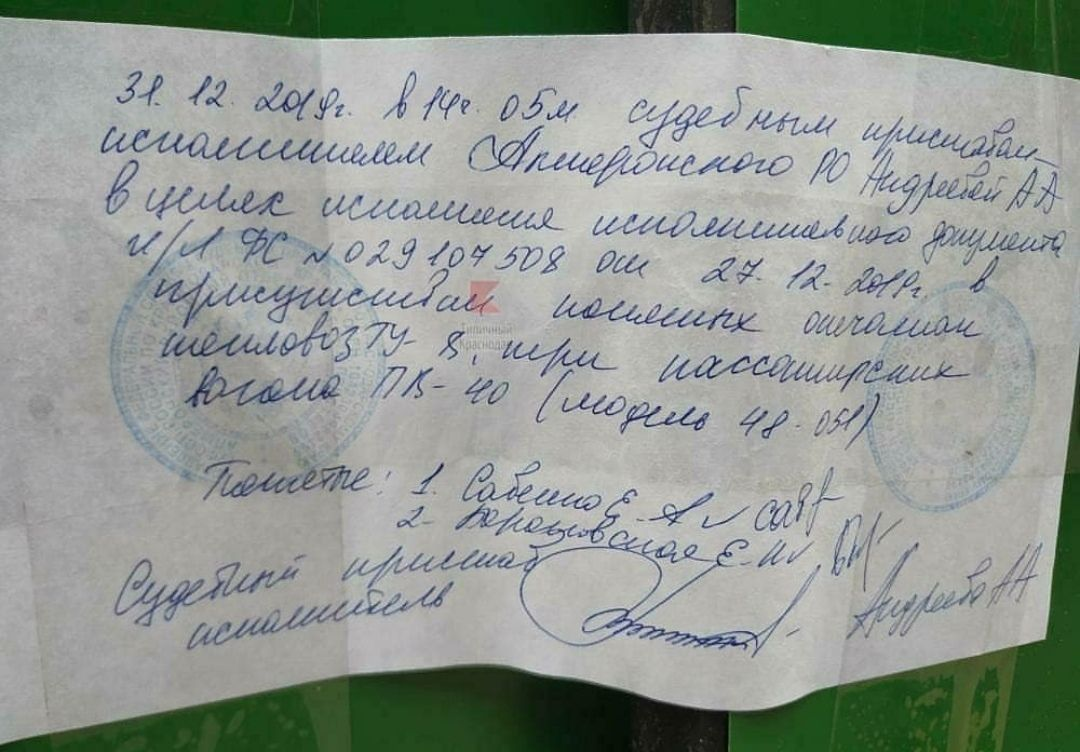 31.12.2019г. в 14ч. 05м судебным приставом-
исполнителем Апшеронского РО Андреевой АА
в целях исполнения исполнительного документа
и/л ФС №029107508 от 27.12.2019г. в
присутствии понятых опечатан
тепловоз ТУ-8, три пассажирских
вагона ПВ-40 (модель 48-051)
Понятые: 1. Е.А.
2. Е.И.
Судебный пристав
исполнитель Андреева АА
Типичный
Краснодар